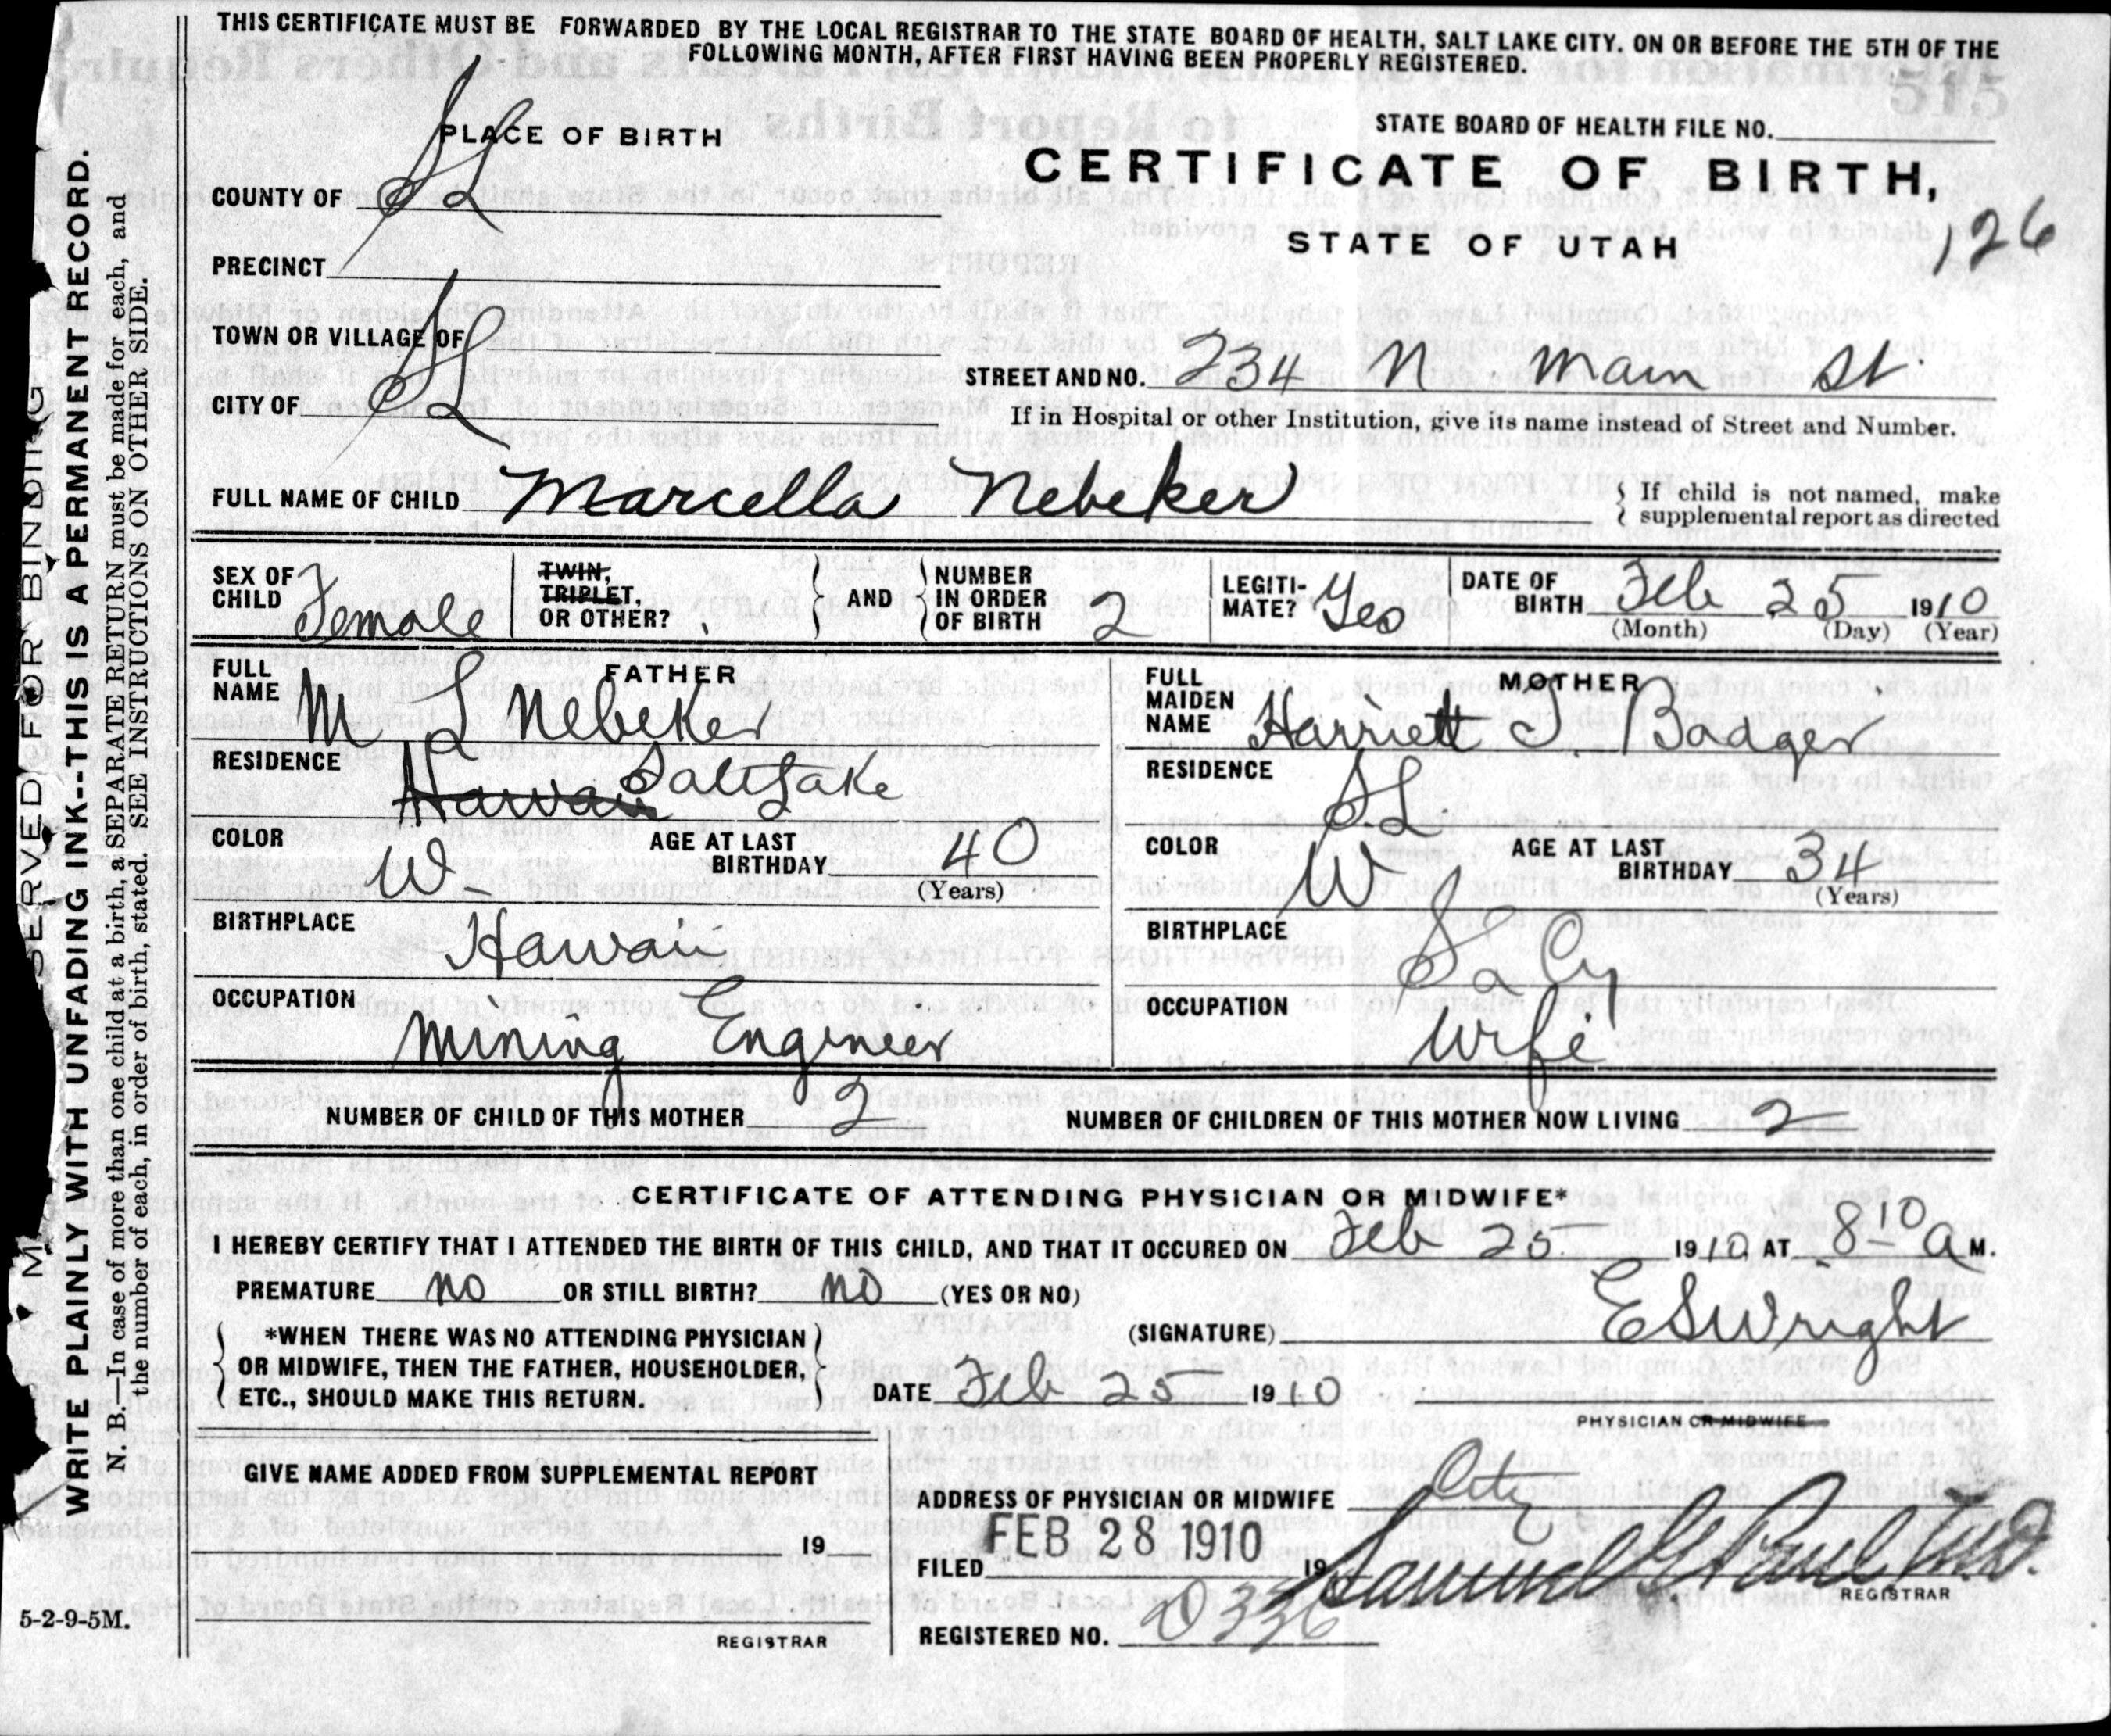 THIS CERTIFICATE MUST BE FORWARDED BY THE LOCAL REGISTRAR TO THE STATE BOARD OF HEALTH, SALT LAKE CITY. ON OR BEFORE THE 5TH OF THE
FOLLOWING MONTH, AFTER FIRST HAVING BEEN PROPERLY REGISTERED.
PLACE OF BIRTH
STATE BOARD OF HEALTH FILE NO.
CERTIFICATE OF BIRTH,
STATE OF UTAH
126
COUNTY OF SL
PRECINCT
TOWN OR VILLAGE OF
CITY OF SL
STREET AND NO. 234 N Main St.
If in Hospital or other Institution, give its name instead of Street and Number.
FULL NAME OF CHILD Marcella Nebeker
If child is not named, make
supplemental report as directed
SEX OF CHILD Female
TWIN, TRIPLET, OR OTHER?
AND
NUMBER IN ORDER OF BIRTH 2
LEGITI-MATE? Yes
DATE OF BIRTH Feb 25 1910
(Month) (Day) (Year)
FATHER
FULL NAME M L Nebeker
RESIDENCE Hawaii Salt Lake
COLOR W-
AGE AT LAST BIRTHDAY 40
(Years)
BIRTHPLACE Hawaii
OCCUPATION
Mining Engineer
MOTHER
FULL MAIDEN NAME Harriett J. Badger
RESIDENCE SL
COLOR W
AGE AT LAST BIRTHDAY 34
(Years)
BIRTHPLACE
OCCUPATION
Wife
NUMBER OF CHILD OF THIS MOTHER 2
NUMBER OF CHILDREN OF THIS MOTHER NOW LIVING 2
CERTIFICATE OF ATTENDING PHYSICIAN OR MIDWIFE*
I HEREBY CERTIFY THAT I ATTENDED THE BIRTH OF THIS CHILD, AND THAT IT OCCURED ON Feb 25 1910, AT 8 10 A M.
PREMATURE no OR STILL BIRTH? no (YES OR NO)
*WHEN THERE WAS NO ATTENDING PHYSICIAN
OR MIDWIFE, THEN THE FATHER, HOUSEHOLDER,
ETC., SHOULD MAKE THIS RETURN.
(SIGNATURE) E S Wright
DATE Feb 25 1910
PHYSICIAN OR MIDWIFE
GIVE NAME ADDED FROM SUPPLEMENTAL REPORT
19
REGISTRAR
ADDRESS OF PHYSICIAN OR MIDWIFE City
FILED FEB 28 1910 19 Samuel G Paul M.D.
REGISTRAR
REGISTERED NO. D 336
5-2-9-5M.
SERVED FOR BINDING
WRITE PLAINLY WITH UNFADING INK--THIS IS A PERMANENT RECORD.
N. B.—In case of more than one child at a birth, a SEPARATE RETURN must be made for each, and
the number of each, in order of birth, stated. SEE INSTRUCTIONS ON OTHER SIDE.